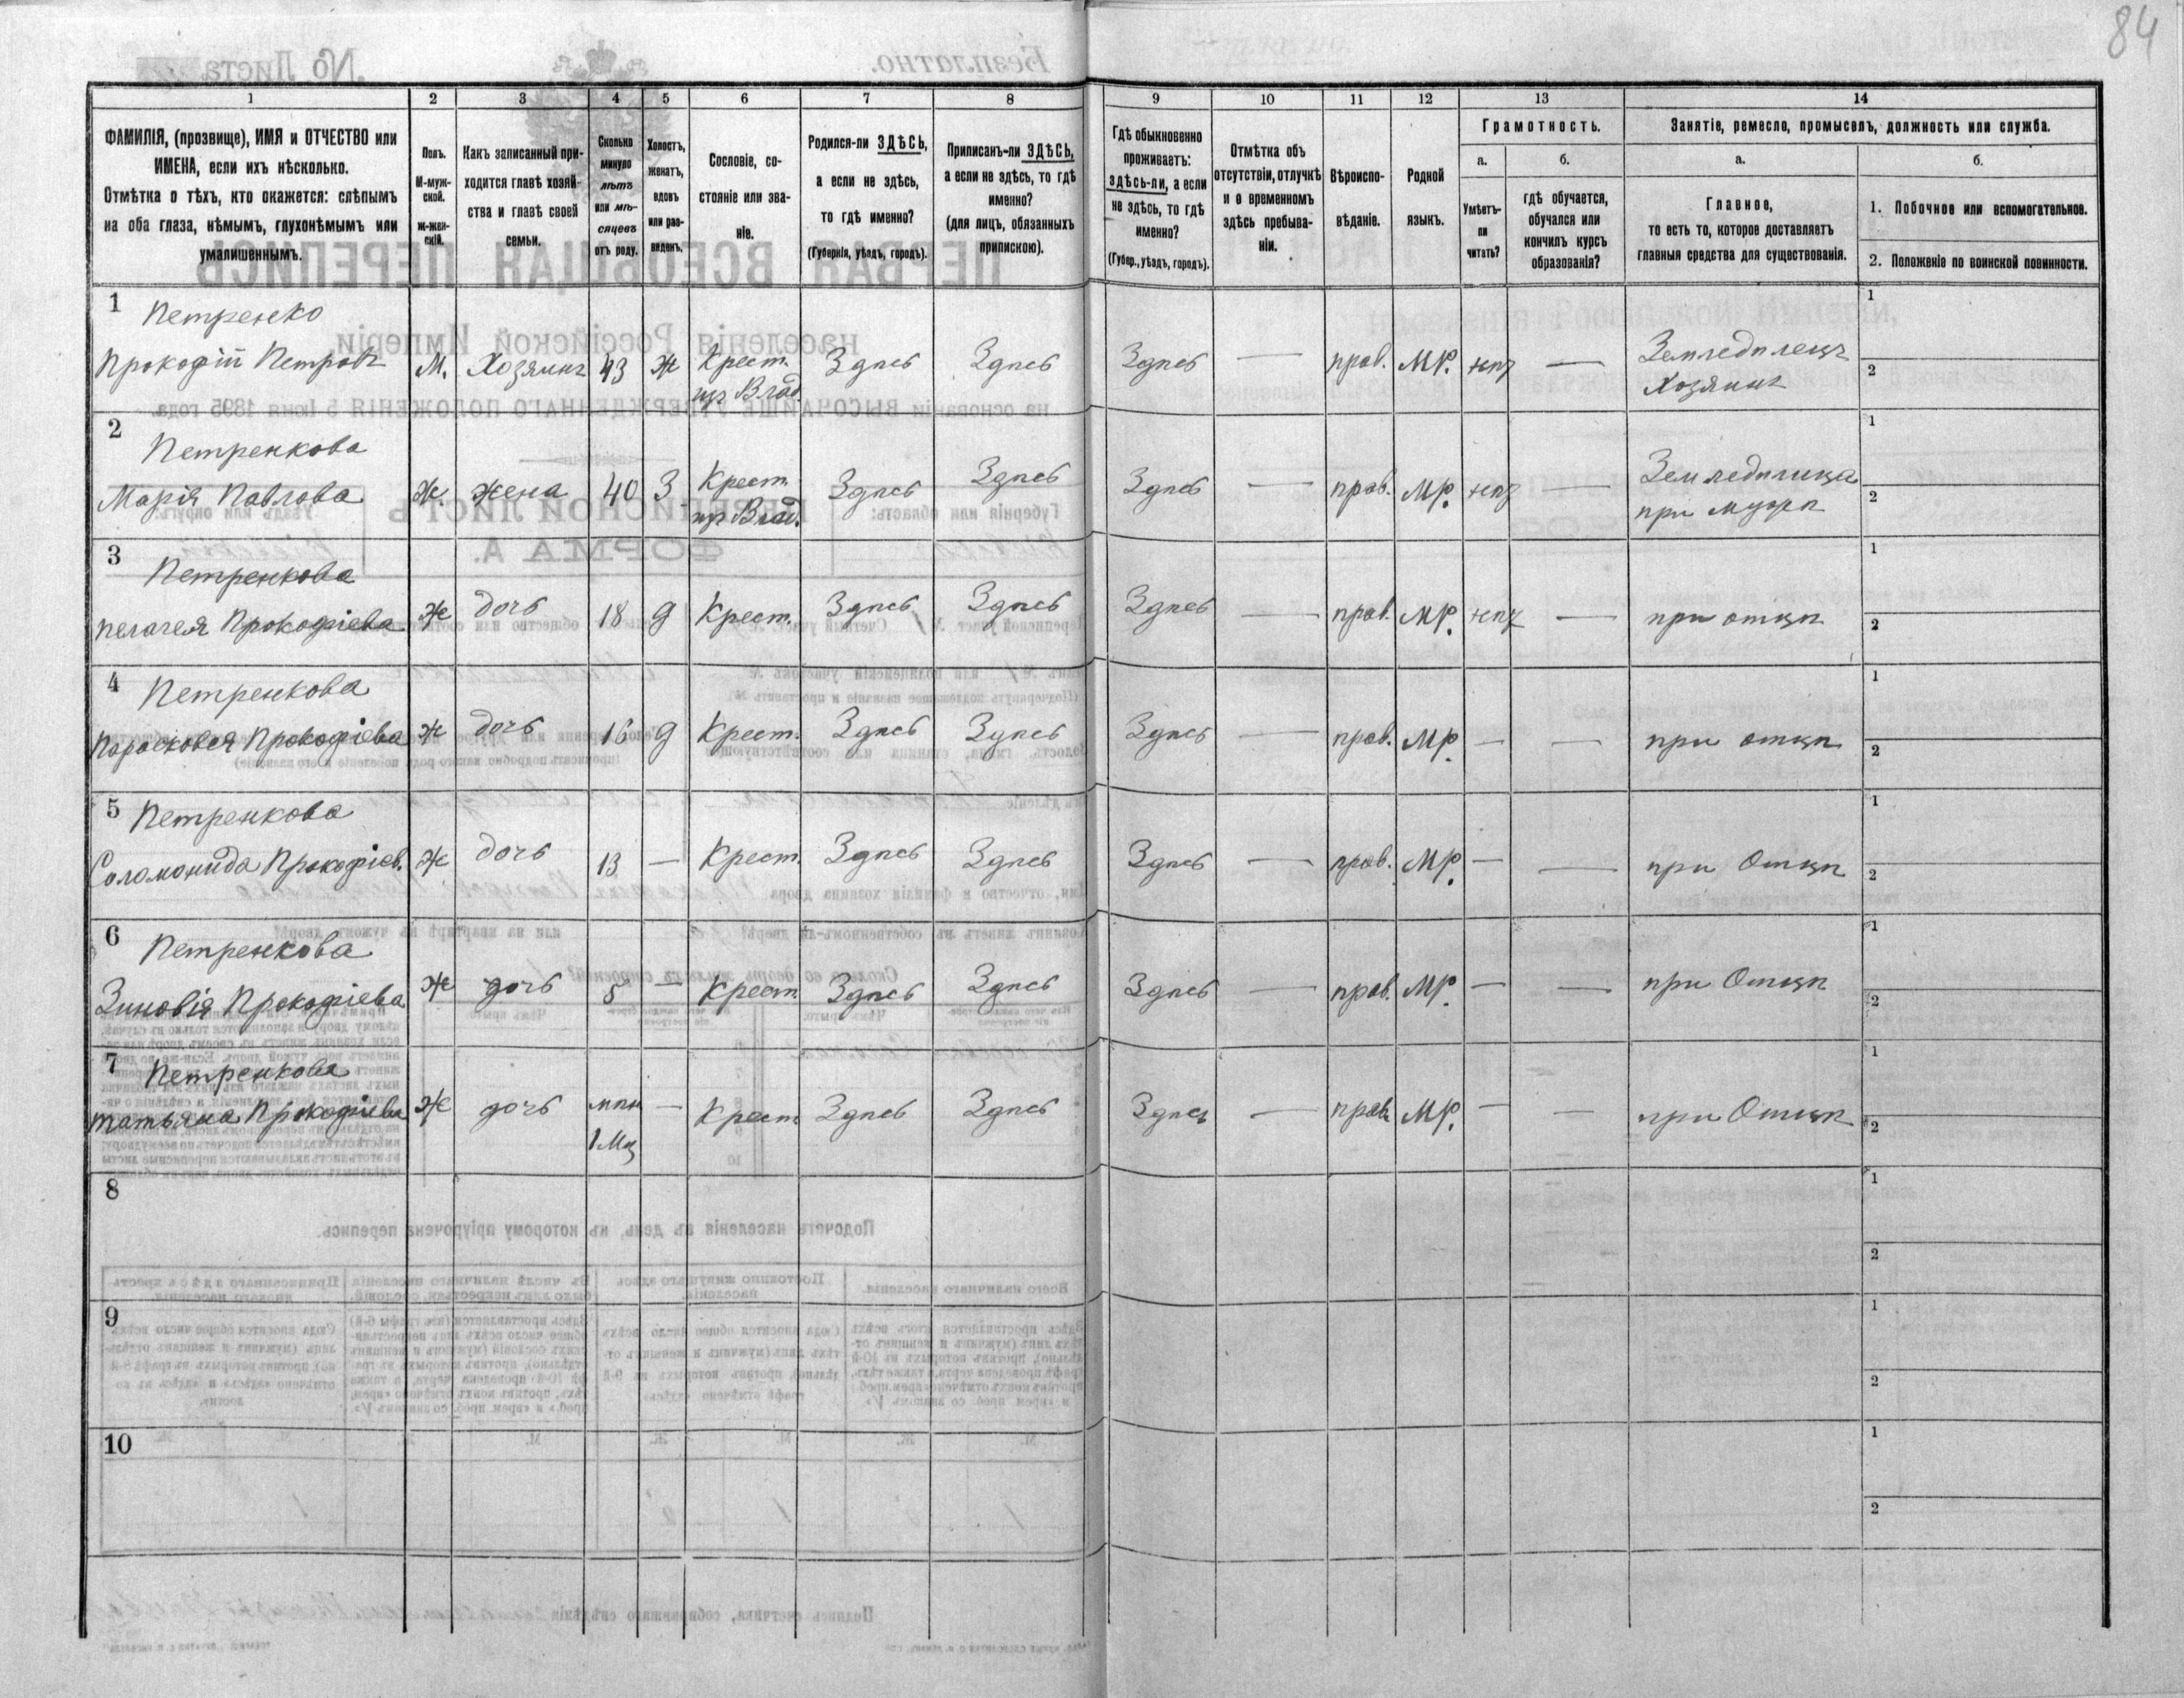 84
1 2 3 4 5 6 7 8 9 10 11 12 13 14
ФАМИЛІЯ, (прозвище), ИМЯ и ОТЧЕСТВО или
ИМЕНА, если ихъ нѣсколько.
Отмѣтка о тѣхъ, кто окажется: слѣпымъ
на оба глаза, нѣмымъ, глухонѣмымъ или
умалишеннымъ.
Полъ.
М-муж-
ской.
Ж-жен-
скій.
Какъ записанный при-
ходится главѣ хозяй-
ства и главѣ своей
семьи.
Сколько
минуло
лѣтъ
или мѣ-
сяцевъ
отъ роду.
Холостъ,
женатъ,
вдовъ
или раз-
веденъ.
Сословіе, со-
стояніе или зва-
ніе.
Родился-ли ЗДѢСЬ,
а если не здѣсь,
то гдѣ именно?
(Губернія, уѣздъ, городъ).
Приписанъ-ли ЗДѢСЬ,
а если не здѣсь, то гдѣ
именно?
(для лицъ, обязанныхъ
припискою).
Гдѣ обыкновенно
проживаетъ:
здѣсь-ли, а если
не здѣсь, то гдѣ
именно?
(Губер., уѣздъ, городъ).
Отмѣтка объ
отсутствіи, отлучкѣ
и о временномъ
здѣсь пребыва-
ніи.
Вѣроиспо-
вѣданіе.
Родной
языкъ.
Грамотность.
а.
Умѣетъ-
ли
читать?
б.
гдѣ обучается,
обучался или
кончилъ курсъ
образованія?
Занятіе, ремесло, промыселъ, должность или служба.
а.
Главное,
то есть то, которое доставляетъ
главныя средства для существованія.
б.
1. Побочное или вспомогательное.
2. Положеніе по воинской повинности.
1 Петренко
Прокофій Петровъ М. Хозяинъ 43 Ж Крест. Здѣсь Здѣсь Здѣсь — прав. МР. нѣтъ — Земледѣлецъ
изъ Влад. Хозяинъ
1
2
2 Петренкова
Марія Павлова Ж. жена 40 З Крест. Здѣсь Здѣсь Здѣсь — прав. МР. нѣтъ — Земледѣлица
изъ Влад. при мужѣ
1
2
3 Петренкова
Пелагея Прокофіева Ж дочь 18 д Крест. Здѣсь Здѣсь Здѣсь — прав. МР. нѣтъ — при отцѣ
1
2
4 Петренкова
Парасковея Прокофіева Ж дочь 16 д Крест. Здѣсь Здѣсь Здѣсь — прав. МР. — — при отцѣ
1
2
5 Петренкова
Соломонида Прокофіев. Ж дочь 13 — Крест. Здѣсь Здѣсь Здѣсь — прав. МР. — — при Отцѣ
1
2
6 Петренкова
Зиновія Прокофіева Ж дочь — Крест. Здѣсь Здѣсь Здѣсь — прав. МР. — — при Отцѣ
1
2
7 Петренкова
Татьяна Прокофіева Ж дочь — Крест. Здѣсь Здѣсь Здѣсь — прав. МР. — — при Отцѣ
1 Мц
1
2
8
1
2
9
1
2
10
1
2